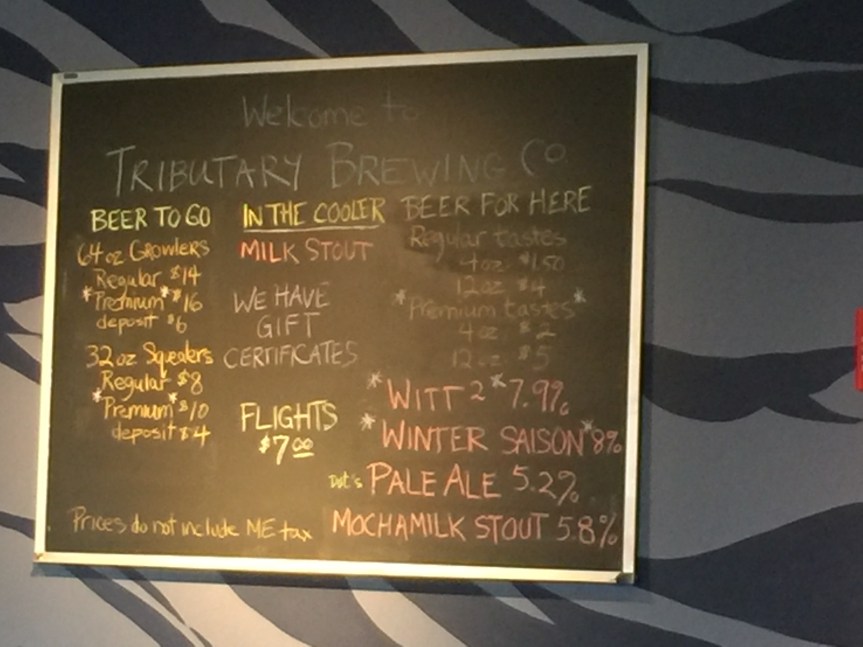 Welcome to
TRIBUTARY BREWING CO.
BEER TO GO
64 oz GROWLERS
Regular $14
*Premium* $16
deposit $6
32 oz Squealers
Regular $8
*Premium* $10
deposit $4
IN THE COOLER
MILK STOUT
WE HAVE
GIFT
CERTIFICATES
FLIGHTS
$7.00
BEER FOR HERE
Regular tastes
4oz $1.50
12oz $4
*Premium tastes*
4oz $2
12oz $5
*WITT 2* 7.9%
*WINTER SAISON* 8%
Dot's PALE ALE 5.2%
MOCHA MILK STOUT 5.8%
Prices do not include ME tax